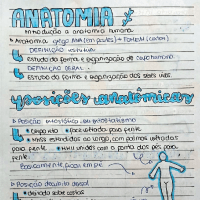 ANATOMIA
Introdução a anatomia humana
Anatomia: grego ANA (em partes) + TOMEIN (cortar)
DEFINIÇÃO
Estudo da forma e organização de
DEFINIÇÃO GERAL:
Estudo da forma e organização dos seres vivos.
posições anatômicas
Posição
Corpo reto Face voltada para frente
MMSS estendidos ao longo, com palmas voltadas
para frente MMII unidos com a ponta dos pés para
frente.
Basicamente, ficar em pé
Posição decúbito dorsal
deitado sobre costas